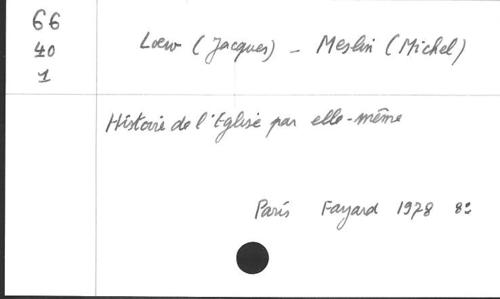 66
40
1
Loew (Jacques) - Meslin (Michel)
Histoire de l'Eglise par elle-même
Paris Fayard 1978 8º